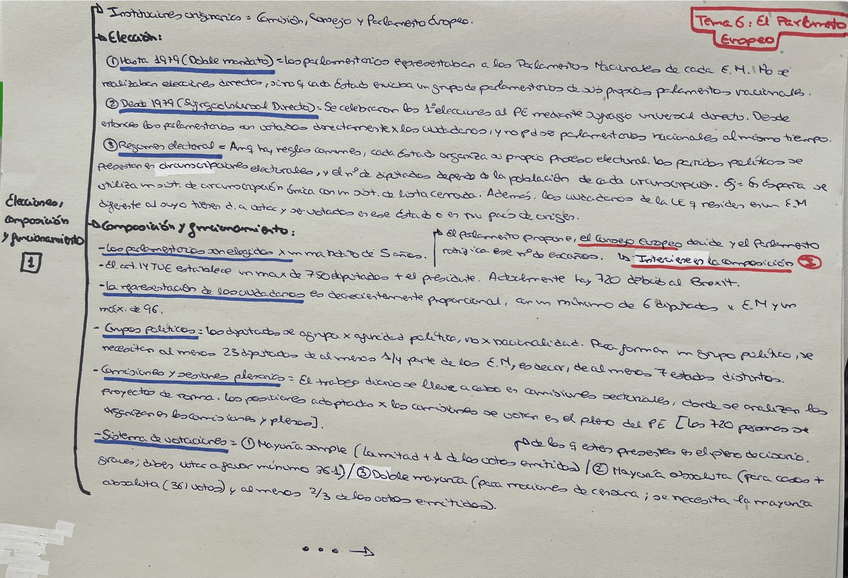 Tema 6: El Parlamento
Europeo
Instituciones originarias = Comisión, Consejo y Parlamento Europeo.
Elección:
① Hasta 1979 (Doble mandato) = los parlamentarios representaban a los Parlamentos Nacionales de cada E.M. No se
realizaban elecciones directas, sino q cada Estado enviaba un grupo de parlamentarios de sus propios parlamentos nacionales.
② Desde 1979 (Sufragio Universal Directo) = Se celebraron las 1ª elecciones al PE mediante sufragio universal directo. Desde
entonces los parlamentarios son votados directamente x los ciudadanos, y no pd se parlamentarios nacionales al mismo tiempo.
③ Regimen electoral = Anq hay reglas comunes, cada Estado organiza su propio proceso electoral. Los partidos políticos se
presentan en circunscripciones electorales, y el nº de diputados depende de la población de cada circunscripción. Ej = En España se
utiliza un sist. de circunscripción única con un sist. de lista cerrada. Además, los ciudadanos de la UE q residen en un E.M
diferente al suyo tienen d. a votar y ser votados en ese Estado o en su país de origen.
Elecciones,
composición
y funcionamiento
1
Composición y funcionamiento:
- Los parlamentarios son elegidos x un mandato de 5 años.
El Parlamento propone, el Consejo Europeo decide y el Parlamento
ratifica ese nº de escaños. Interviene en la composición
- El art. 14 TUE establece un max de 750 diputados + el presidente. Actualmente hay 720 debido al Brexit.
- La representación de los ciudadanos es decrecientemente proporcional, con un mínimo de 6 diputados x E.M y un
máx. de 96.
- Grupos políticos = Los diputados se agrupan x afinidad política, no x nacionalidad. Para formar un grupo político, se
necesitan al menos 23 diputados de al menos 1/4 parte de los E.M, es decir, de al menos 7 estados distintos.
- Comisiones y sesiones plenarias = El trabajo diario se lleva a cabo en comisiones sectoriales, donde se analizan los
proyectos de norma. Las posiciones adoptadas x las comisiones se votan en el pleno del PE [Los 720 personas se
organizan en las comisiones y plenos].
- Sistema de votaciones = ① Mayoría simple (La mitad + 1 de los votos emitidos) / ② Mayoría absoluta (para casos +
de los q estén presentes en el pleno decisorio.
graves; deben votar a favor mínimo 361) / ③ Doble mayoría (para mociones de censura; se necesita la mayoría
absoluta (361 votos) y al menos 2/3 de los votos emitidos).